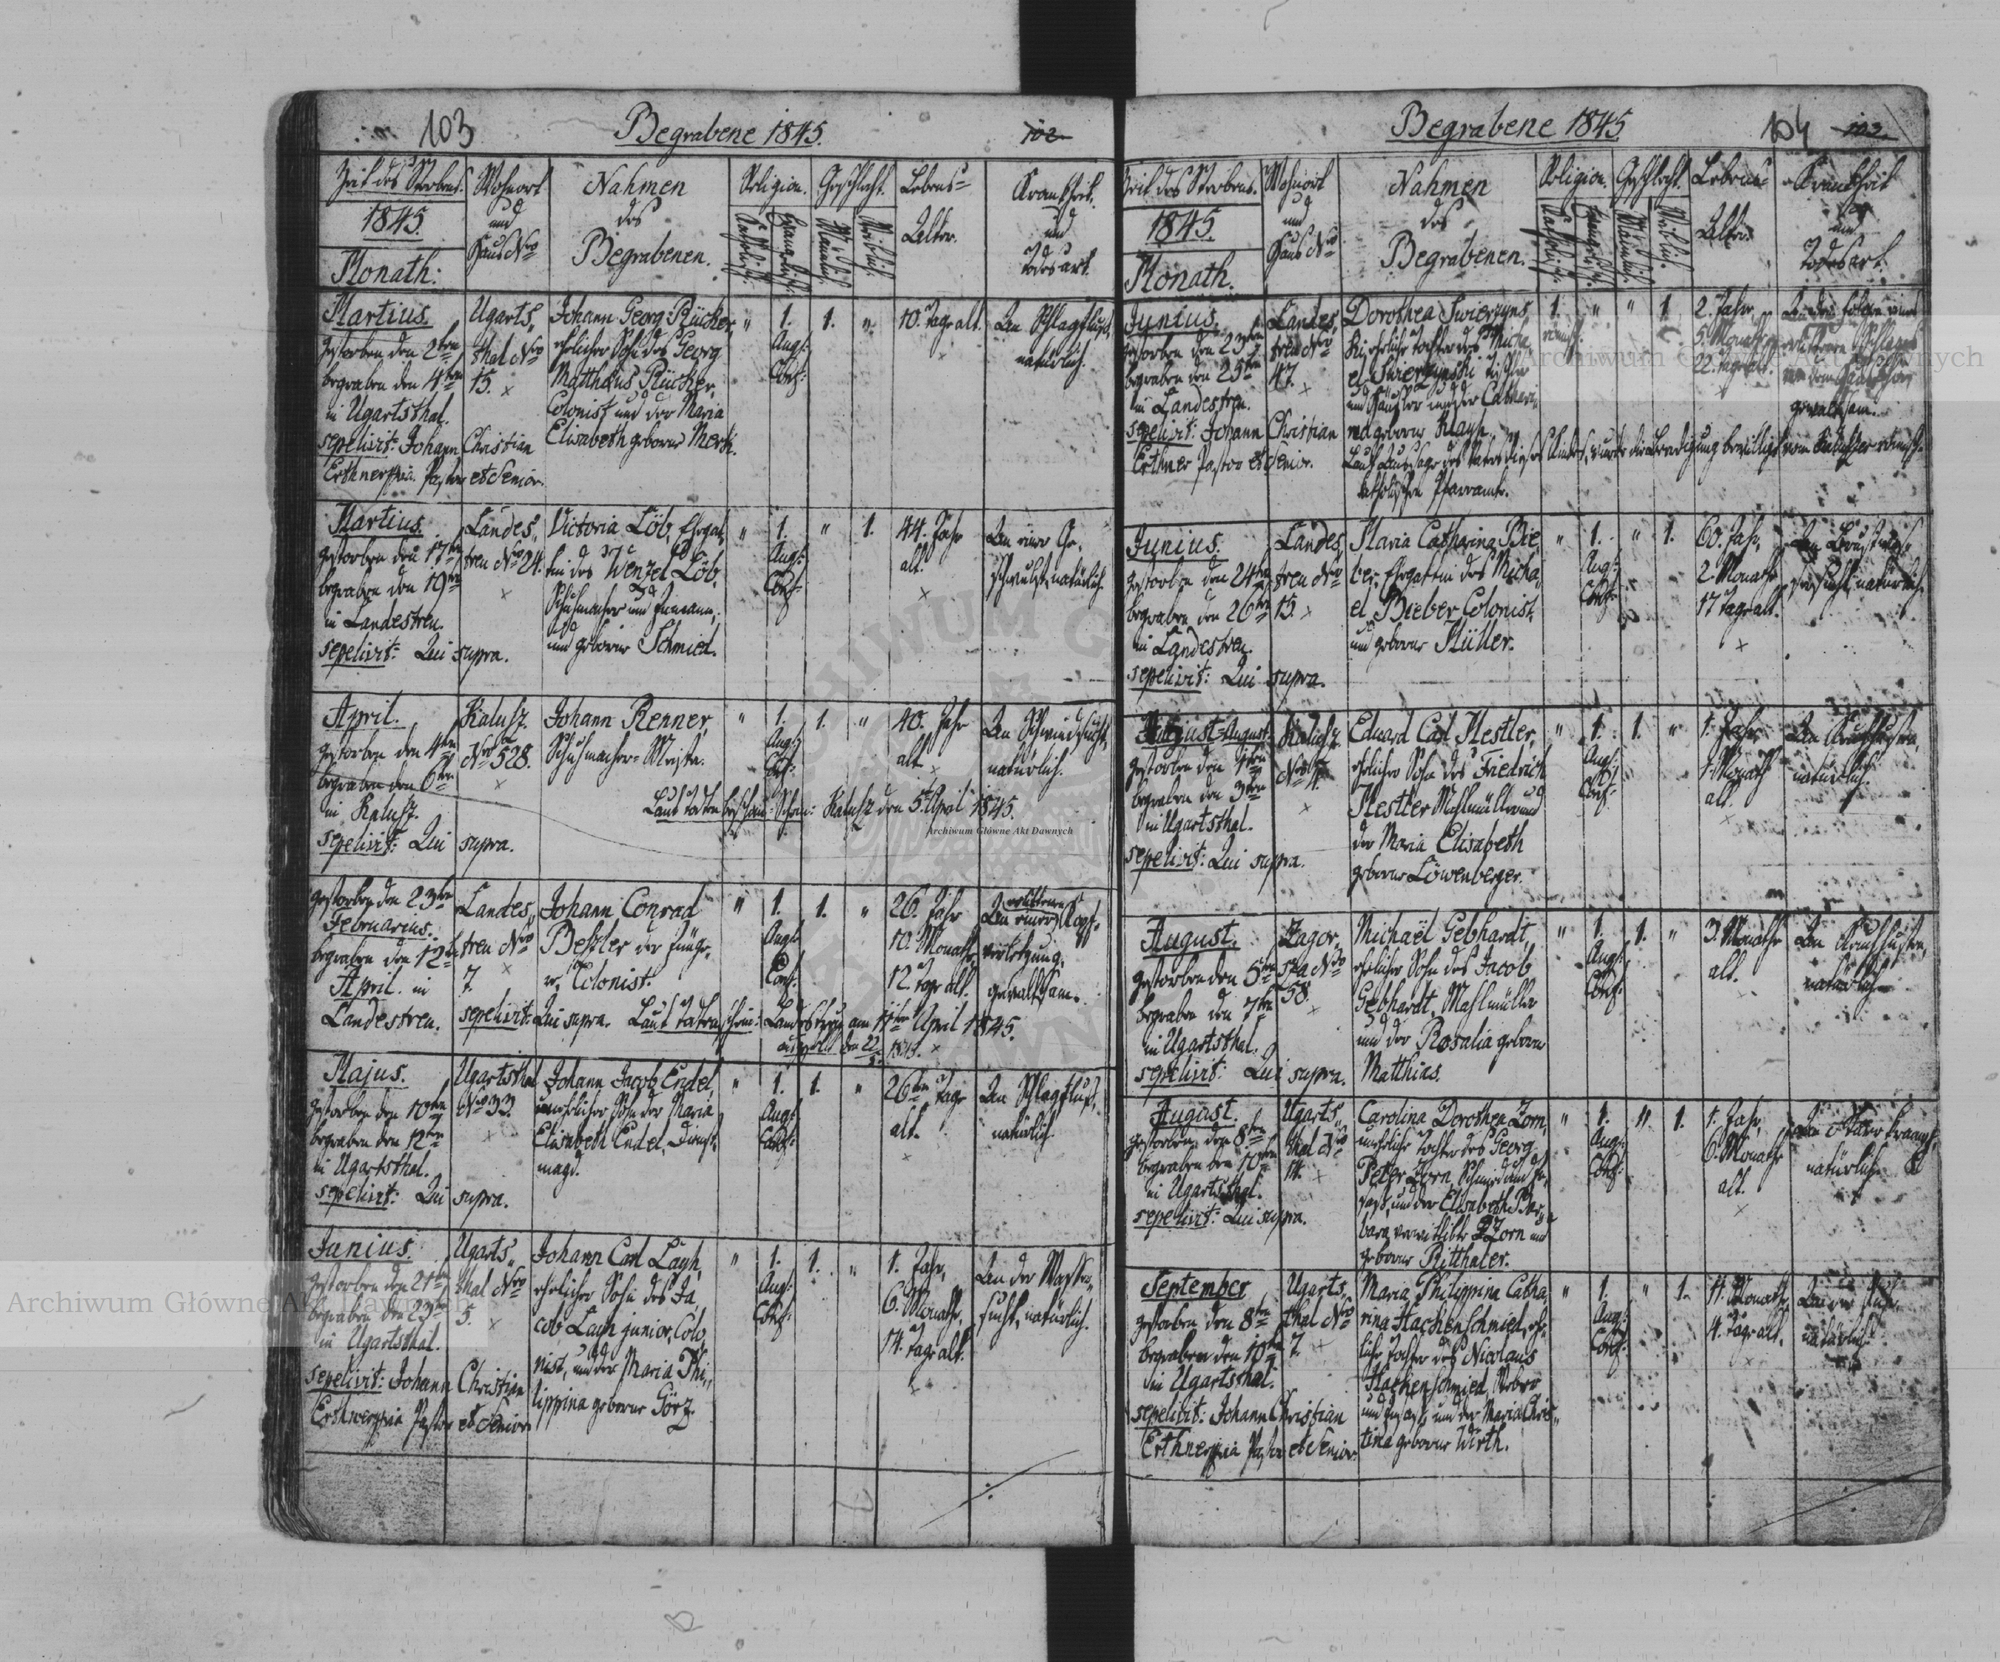 103
Begrabene 1845.
102
Zeit des Sterbens.
1845.
Monath:
Wohnort
und
Haus Nro
Nahmen
des
Begrabenen.
Religion.
Katholisch.
Evangelisch.
Geschlecht.
Männlich.
Weiblich.
Lebens-
Alter.
Krankheit.
und
Todesart.
Martius.
gestorben den 2ten
begraben den 4ten
in Ugartsthal.
sepelivit: Johann Christian
Erthner Pastor et Senior.
Ugarts-
thal Nro
15.
Johann Georg Rücker,
ehelicher Sohn des Georg
Matthäus Rücker,
Colonist und der Maria
Elisabeth geborne Merk.
" 1. 1. "
Augs:
Conf:
10. Tage alt.
Am Schlagfluß,
natürlich.
Martius.
gestorben den 17ten
begraben den 19ten
in Landestreu.
sepelivit: Qui supra.
Landes-
treu Nro 24.
Victoria Löb, Ehegat-
tin des Wenzel Löb,
Schuhmacher und
und geborne Schmied.
" 1. " 1.
Augs:
Conf:
44. Jahr
alt.
An einer Ge-
schwulst, natürlich.
April.
gestorben den 4ten
begraben den 6ten
in Kalusz.
sepelivit: Qui supra.
Kalusz
Nro 528.
Johann Renner,
Schuhmacher-Meister.
" 1. 1. "
Augs:
Conf:
40. Jahr
alt.
An Schwindsucht,
natürlich.
Laut Todtenbeschau-Schein: Kalusz den 5. April 1845.
gestorben den 23ten
Februarius.
begraben den 12ten
April in
Landestreu.
Landes-
treu Nro
7.
Johann Conrad
Beßler der Jünge-
re, Colonist.
" 1. 1. "
Augs:
Conf:
26. Jahr
10. Monathe
12 Tage alt.
An einer erlittenen Kopf-
verletzung,
gewaltsam.
sepelivit: Qui supra. Laut Todtenschein: Landestreu am 11ten April 1845.
Majus.
gestorben den 10ten
begraben den 12ten
in Ugartsthal.
sepelivit: Qui supra.
Ugartsthal
Nro 33.
Johann Jacob Endel,
unehelicher Sohn der Maria
Elisabeth Endel, Dienst-
magd.
" 1. 1. "
Augs:
Conf:
26 Tage
alt.
Am Schlagfluß,
natürlich.
Junius.
gestorben den 21ten
begraben den 23ten
in Ugartsthal.
sepelivit: Johann Christian
Erthner Pastor et Senior
Ugarts-
thal Nro
5.
Johann Carl Layh,
ehelicher Sohn des Ja-
cob Layh junior, Colo-
nist, und der Maria Phi-
lippina geborne Görz.
" 1. 1. "
Augs:
Conf:
1. Jahr,
6. Monathe,
14. Tage alt.
An der Wasser-
sucht, natürlich.
Begrabene 1845.
104
103.
Zeit des Sterbens.
1845.
Monath.
Wohnort
und
Haus Nro
Nahmen
des
Begrabenen.
Religion.
Katholisch.
Evangelisch.
Geschlecht.
Männlich.
Weiblich.
Lebens-
Alter.
Krankheit
und
Todesart.
Junius.
gestorben den 23ten
begraben den 25ten
in Landestreu.
sepelivit: Johann Christian
Erthner Pastor et Senior.
Landes-
treu Nro
47.
Dorothea Swierzyns-
ki eheliche Tochter des Micha-
el Swierzynski Tischler
und Häusler und der Cathari-
na geborne Klayh.
1. " " 1.
2. Jahr
5. Monathe
22. Tage alt.
gewaltsam.
Laut Aussage des Vaters wurde die Beerdigung bewilligt vom Kaluszer römisch-
katholischen Pfarramte.
Junius.
gestorben den 24ten
begraben den 26ten
in Landestreu.
sepelivit: Qui supra.
Landes-
treu Nro
15.
Maria Catharina Bie-
ber, Ehegattin des Micha-
el Bieber, Colonist,
und geborne Müller.
" 1. " 1.
Augs:
Conf:
60. Jahr,
2 Monathe
17 Tage alt.
natürlich.
August.
gestorben den 1ten
begraben den 3ten
in Ugartsthal.
sepelivit: Qui supra.
Kalusz.
Eduard Carl Mestler,
ehelicher Sohn des Friedrich
Mestler Mahlmüller und
der Maria Elisabeth
geborne Löwenberger.
" 1. 1. "
Augs:
Conf:
1. Jahr
1. Monath
alt.
Am Keuchhusten,
natürlich.
August.
gestorben den 5ten
begraben den 7ten
in Ugartsthal.
sepelivit: Qui supra.
Zagor-
Nro
58.
Michaël Gebhardt,
ehelicher Sohn des Jacob
Gebhardt, Mahlmüller
und der Rosalia geborne
Matthias.
" 1. 1. "
Augs:
Conf:
3. Monathe
alt.
Am Keuchhusten,
natürlich.
August.
gestorben den 8ten
begraben den 10ten
in Ugartsthal.
sepelivit: Qui supra.
Ugarts-
thal Nro
14.
Carolina Dorothea Zorn,
uneheliche Tochter des Georg
Peter Zorn, Schmied und
und der Elisabeth Bar-
bara verwittibte Zorn und
geborne Ritthaler.
" 1. " 1.
Augs:
Conf:
1. Jahr,
6. Monathe
alt.
natürlich.
September
gestorben den 8ten
begraben den 10ten
in Ugartsthal.
sepelivit: Johann Christian
Erthner Pastor et Senior.
Ugarts-
thal Nro
7.
Maria Philippina Catha-
rina Hachenschmied, ehe-
liche Tochter des Nicolaus
Hachenschmied, Weber
und und der Maria Chris-
tina geborne Wirth.
" 1. " 1.
Augs:
Conf:
4. Monath
4. Tage alt.
An der Ruhr,
natürlich.
Archiwum Główne Akt Dawnych
Archiwum Główne Akt Dawnych
Archiwum Główne Akt Dawnych